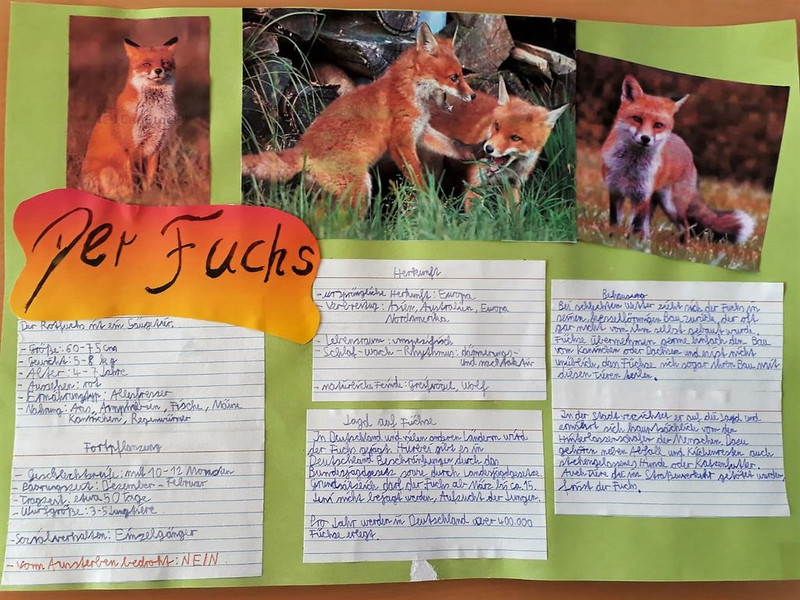 Der Fuchs
Der Rotfuchs ist ein Säugetier.
- Größe: 60-75 cm
- Gewicht: 5-8 kg
- Alter: 4-7 Jahre
- Aussehen: rot
- Ernährungstyp: Allesfresser
- Nahrung: Aas, Amphibien, Fische, Mäuse
Kaninchen, Regenwürmer
Fortpflanzung
- Geschlechtsreife: mit 10-12 Monaten
- Paarungszeit: Dezember - Februar
- Tragzeit: etwa 50 Tage
- Wurfgröße: 3-5 Jungtiere
- Sozialverhalten: Einzelgänger
- vom Aussterben bedroht: NEIN
Herkunft
- ursprüngliche Herkunft: Europa
- Verbreitung: Asien, Australien, Europa
Nordamerika
- Lebensraum: unspezifisch
- Schlaf-Wach-Rhythmus: dämmerungs-
und nachtaktiv
- natürliche Feinde: Greifvögel, Wolf
Jagd auf Füchse
In Deutschland und vielen anderen Ländern wird
der Fuchs gejagt. Hierbei gibt es in
Deutschland Beschränkungen durch das
Bundesjagdgesetz sowie durch Landesjagdgesetze.
Grundsätzlich darf der Fuchs ab März bis ca. 15.
Juni nicht bejagt werden, Aufzucht der Jungen.
Pro Jahr werden in Deutschland über 400.000
Füchse erlegt.
Behausung
Bei schlechtem Wetter zieht sich der Fuchs in
seinen kesselförmigen Bau zurück, der oft
gar nicht von ihm selbst gebaut wurde.
Füchse übernehmen gerne einfach den Bau
vom Kaninchen oder Dachsen und es ist nicht
unüblich, das Füchse sich sogar ihren Bau mit
diesen Tieren teilen.
In der Stadt verzichtet er auf die Jagd und
ernährt sich hauptsächlich von den
Hinterlassenschaften der Menschen. Dazu
gehören neben Abfall und Küchenresten auch
stehengelassenes Hunde oder Katzenfutter.
Auch Tiere die im Straßenverkehr getötet wurden,
frisst der Fuchs.